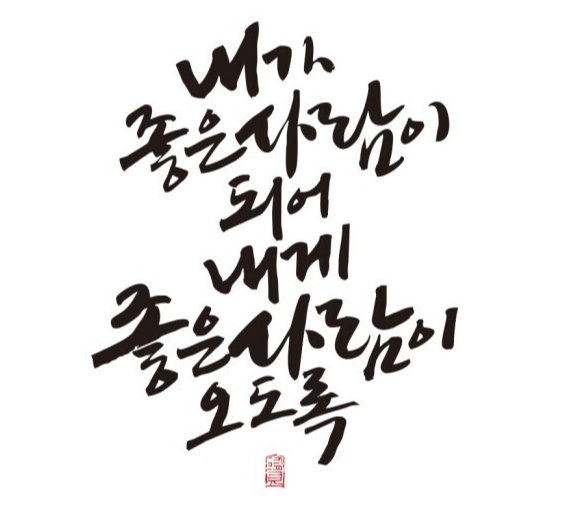 내가
좋은사람이
되어
내게
좋은사람이
오도록